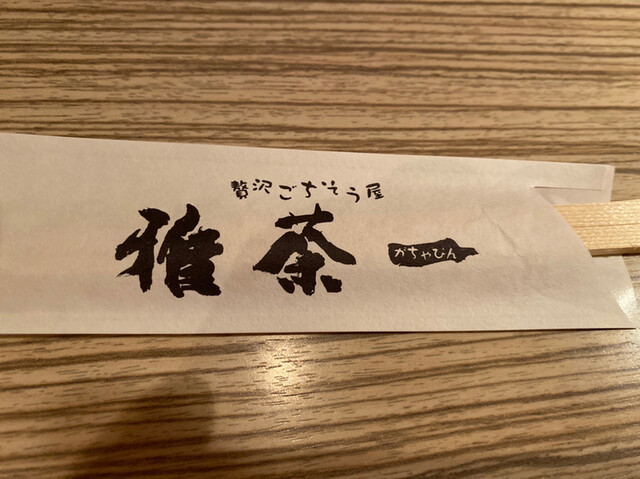 贅沢ごちそう屋
雅茶一
がちゃぴん